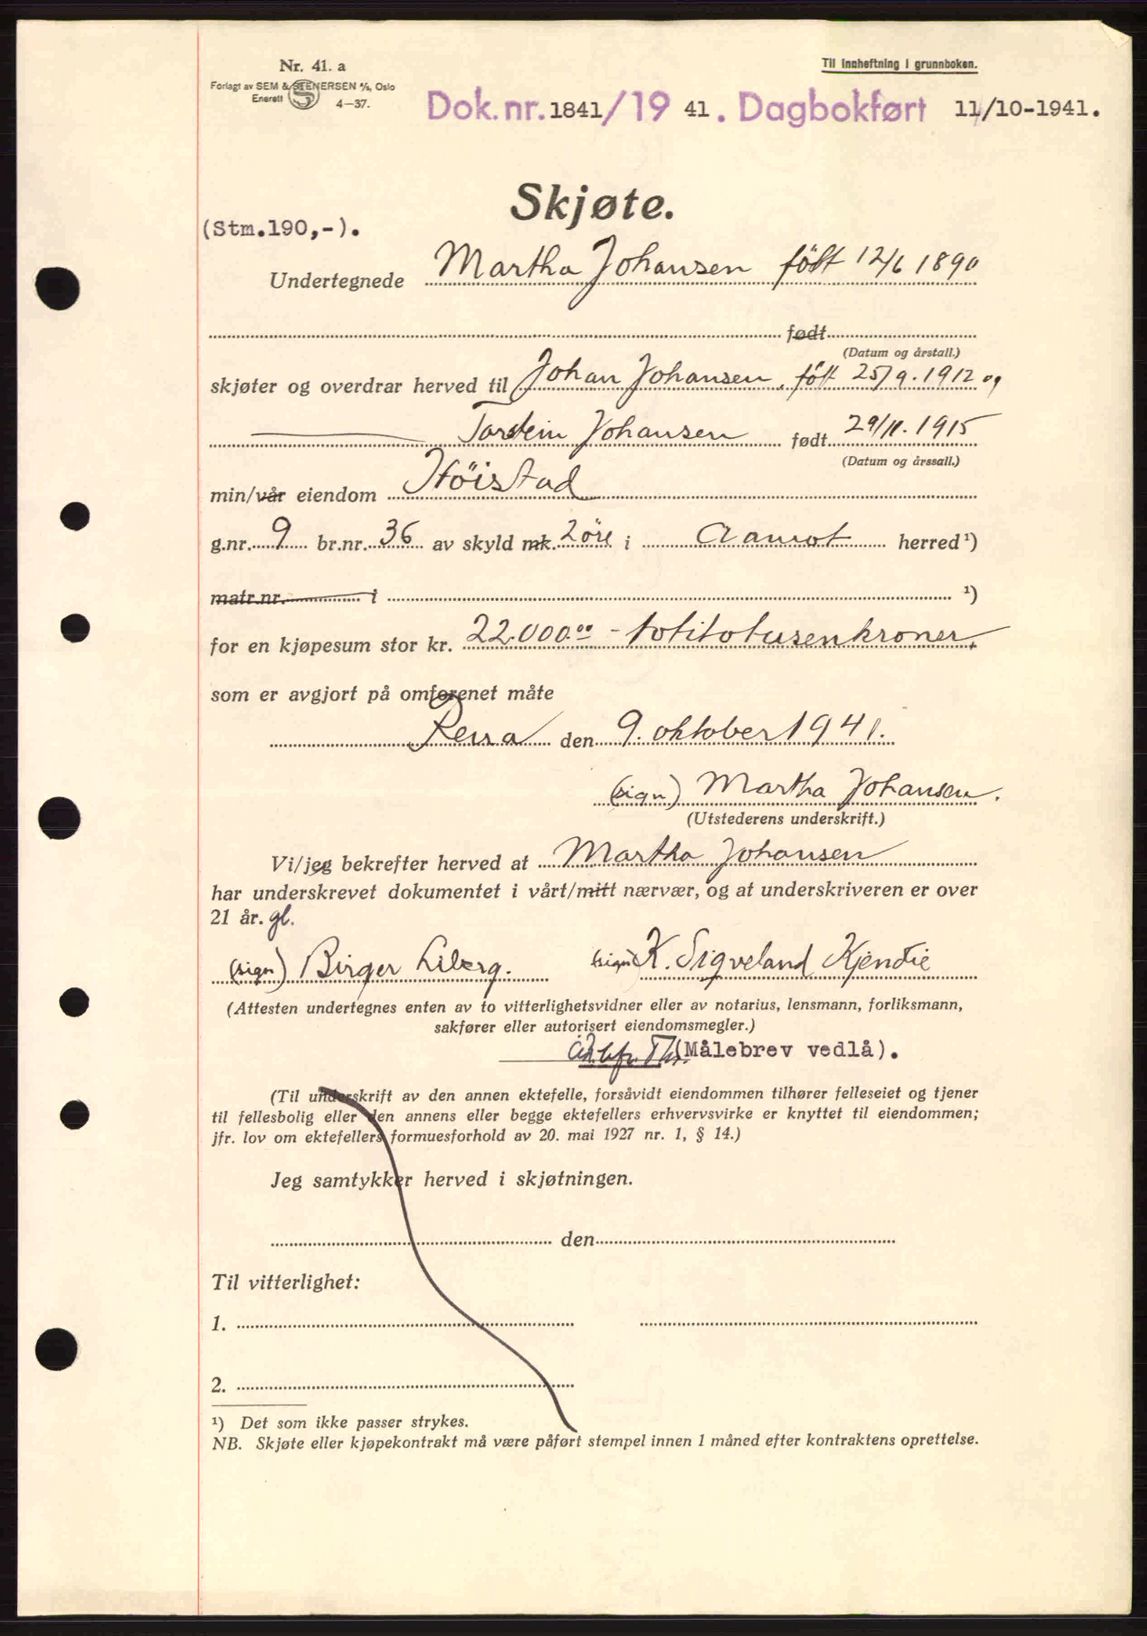 Nr. 41. a
Til innheftning i grunnboken.
Forlagt av SEM & STENERSEN A/S, Oslo
Enerett 4—37.
Dok. nr. 1841/19 41. Dagbokført 11/10-1941.
Skjøte.
(Stm.190,-).
Undertegnede Martha Johansen født 12/6 1890
født
(Datum og årstall.)
skjøter og overdrar herved til Johan Johansen, født 25/9. 1912 og
Torstein Johansen født 29/11. 1915
(Datum og årssall.)
min/vår eiendom Höistad
g.nr. 9 br.nr. 36 av skyld mk. 2 öre i Aamot herred ¹)
matr.nr. i ¹)
for en kjøpesum stor kr. 22.000.00 - totitotusenkroner.
som er avgjort på omforenet måte
Rena den 9. oktober 1941.
(sign) Martha Johansen.
(Utstederens underskrift.)
Vi/jeg bekrefter herved at Martha Johansen
har underskrevet dokumentet i vårt/mitt nærvær, og at underskriveren er over
21 år. gl.
(sign) Birger Liberg. (sign) K. Sigveland Kjendlie
(Attesten undertegnes enten av to vitterlighetsvidner eller av notarius, lensmann, forliksmann,
sakfører eller autorisert eiendomsmegler.)
(Målebrev vedlå).
(Til underskrift av den annen ektefelle, forsåvidt eiendommen tilhører felleseiet og tjener
til fellesbolig eller den annens eller begge ektefellers erhvervsvirke er knyttet til eiendommen;
jfr. lov om ektefellers formuesforhold av 20. mai 1927 nr. 1, § 14.)
Jeg samtykker herved i skjøtningen.
den
Til vitterlighet:
1.
2.
¹) Det som ikke passer strykes.
NB. Skjøte eller kjøpekontrakt må være påført stempel innen 1 måned efter kontraktens oprettelse.